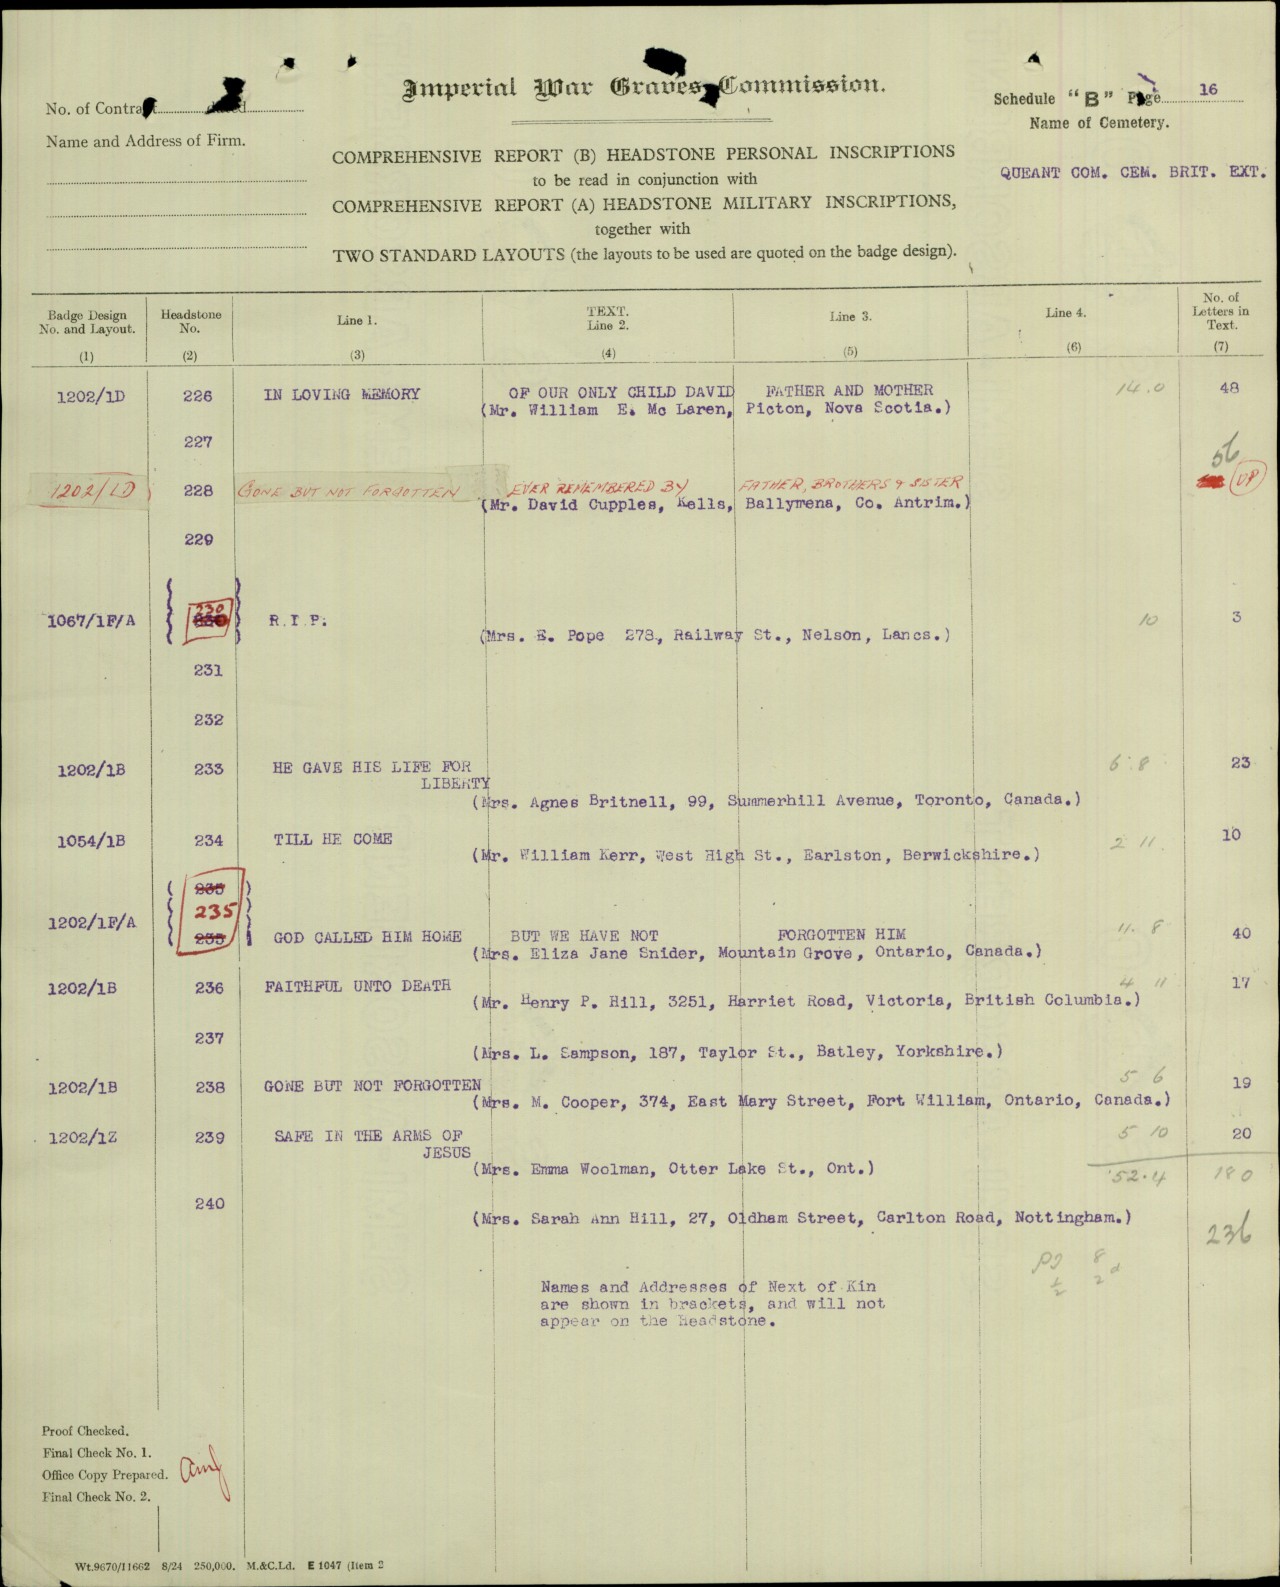 Imperial War Graves Commission.
No. of Contract dated
Name and Address of Firm.
Schedule "B" Page 16
Name of Cemetery.
QUEANT COM. CEM. BRIT. EXT.
COMPREHENSIVE REPORT (B) HEADSTONE PERSONAL INSCRIPTIONS
to be read in conjunction with
COMPREHENSIVE REPORT (A) HEADSTONE MILITARY INSCRIPTIONS,
together with
TWO STANDARD LAYOUTS (the layouts to be used are quoted on the badge design).
Badge Design No. and Layout. Headstone No. Line 1. TEXT. Line 2. Line 3. Line 4. No. of Letters in Text.
(1) (2) (3) (4) (5) (6) (7)
1202/1D 226 IN LOVING MEMORY OF OUR ONLY CHILD DAVID FATHER AND MOTHER 14.0 48
(Mr. William E. Mc Laren, Picton, Nova Scotia.)
227
56
1202/1D 228 GONE BUT NOT FORGOTTEN EVER REMEMBERED BY FATHER, BROTHERS & SISTER UP
(Mr. David Cupples, Kells, Ballymena, Co. Antrim.)
229
230
1067/1F/A R.I.P. 10 3
(Mrs. E. Pope 278, Railway St., Nelson, Lancs.)
231
232
1202/1B 233 HE GAVE HIS LIFE FOR 6.8 23
LIBERTY
(Mrs. Agnes Britnell, 99, Summerhill Avenue, Toronto, Canada.)
1054/1B 234 TILL HE COME 2 11 10
(Mr. William Kerr, West High St., Earlston, Berwickshire.)
235
235
1202/1F/A
235 GOD CALLED HIM HOME BUT WE HAVE NOT FORGOTTEN HIM 11.8 40
(Mrs. Eliza Jane Snider, Mountain Grove, Ontario, Canada.)
1202/1B 236 FAITHFUL UNTO DEATH 4 11 17
(Mr. Henry P. Hill, 3251, Harriet Road, Victoria, British Columbia.)
237
(Mrs. L. Sampson, 187, Taylor St., Batley, Yorkshire.)
1202/1B 238 GONE BUT NOT FORGOTTEN 5 6 19
(Mrs. M. Cooper, 374, East Mary Street, Fort William, Ontario, Canada.)
1202/1Z 239 SAFE IN THE ARMS OF 5 10 20
JESUS
(Mrs. Emma Woolman, Otter Lake St., Ont.)
52.4 180
240
(Mrs. Sarah Ann Hill, 27, Oldham Street, Carlton Road, Nottingham.)
236
8
½ 2d
Names and Addresses of Next of Kin
are shown in brackets, and will not
appear on the Headstone.
Proof Checked.
Final Check No. 1.
Office Copy Prepared.
Final Check No. 2.
Wt.9670/11662 8/24 250,000. M.&C.Ld. E 1047 (Item 2